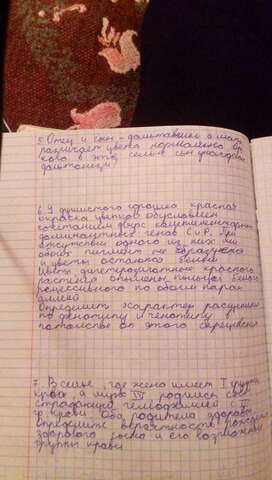 5. Отец и сын - дальтоники а мать
различает цвета нормально
в этой семье сын унаследовал
дальтонизм
6. У душистого горошка красная
окраска цветков обусловлена
сочетанием двух комплементарных
доминантных генов С и Р. При
отсутствии одного из них или
обоих пигмент не образуется
и цветы остаются белыми
Цветы дигетерозиготного красного
растения опылены пыльцой белого
рецессивного по обоим парам
аллелей
Определите характер расщепления
по генотипу и фенотипу в
потомстве от этого скрещивания
7. В семье, где жена имеет I группу
крови, а муж IV, родился сын
страдающий гемофилией с III
гр. крови Оба родителя здоровы
определите вероятность рождения
здорового сына и его возможные
группы крови